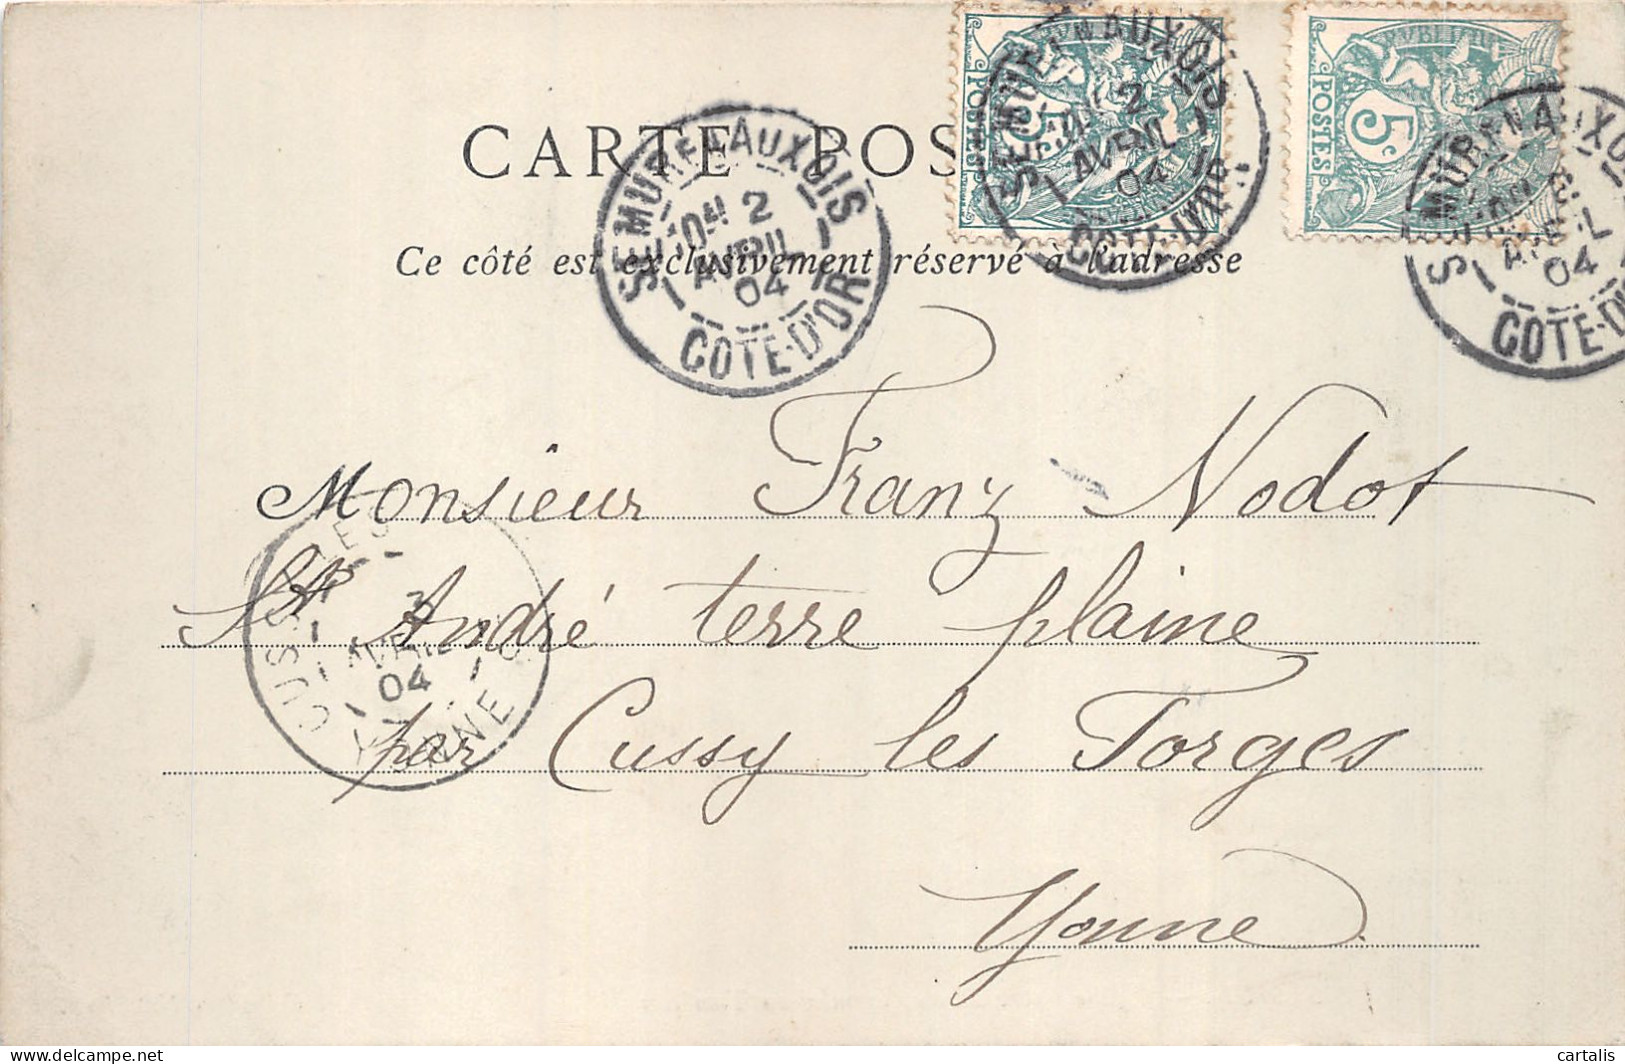 CARTE POS
Ce côté est exclusivement réservé à l'adresse
RÉPUBLIQUE
POSTES
5c
POSTES
5c
SEMUR-EN-AUXOIS
2
AVRIL
04
COTE-D'OR
SEMUR-EN-AUXOIS
2
AVRIL
04
COTE-D'OR
SEMUR-EN-AUXOIS
AVRIL
04
COTE-D'O
Monsieur Franz Nodot
St André terre plaine
par Cussy les Forges
Yonne
3
AVRIL
04
YONNE
delcampe.net
cartalis